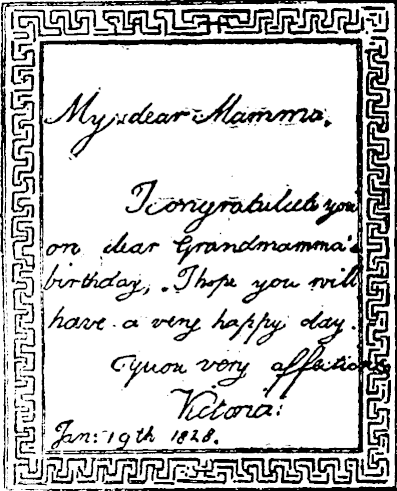 My dear Mamma,
I congratulate you
on dear Grandmamma's
birthday, I hope you will
have a very happy day.
very affection
Victoria:
Jan: 19th 1828.